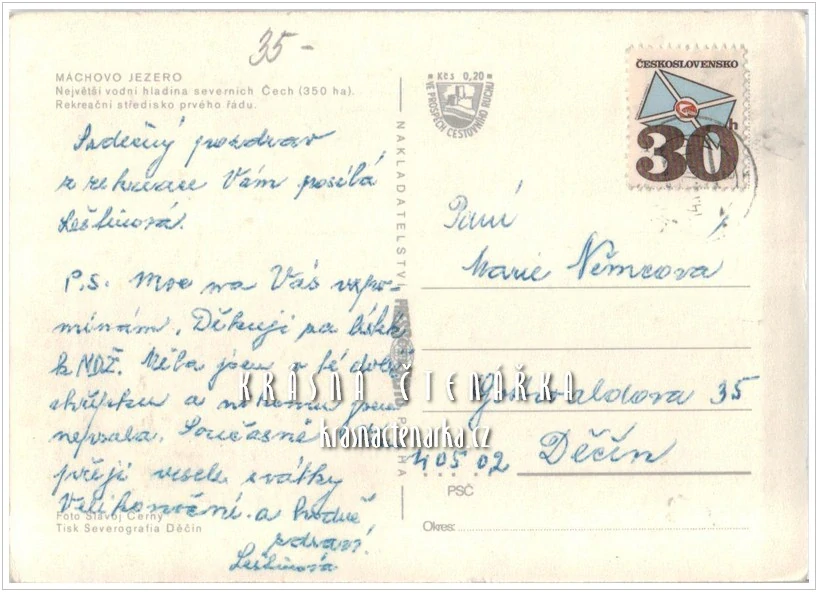 35-
MÁCHOVO JEZERO
Největší vodní hladina severních Čech (350 ha).
Rekreační středisko prvého řádu.
Srdečný pozdrav
z rekreace Vám posílá
Leštinová.
P.S. Moc na Vás vzpo-
mínám. Děkuji za lístek
k MDŽ. Měla jsem v té době
chřipku a nikomu jsem
nepsala. Současně
přeji veselé svátky
Velikonoční a hodně
zdraví!
Leštinová
Foto Slavoj Černý
Tisk Severografia Děčín
NAKLADATELSTVÍ
PRAHA
Kčs 0,20
VE PROSPĚCH CESTOVNÍHO RUCHU
ČESKOSLOVENSKO
30h
Paní
Marie Němcova
Gottwaldova 35
405 02 Děčín
PSČ
Okres:
KRÁSNÁ ČTENÁŘKA
krasnactenarka.cz